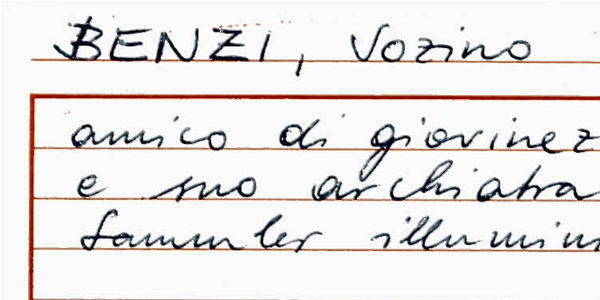 BENZI, Vozino
amico di giovinez
e suo archiatra
Sammler illumin